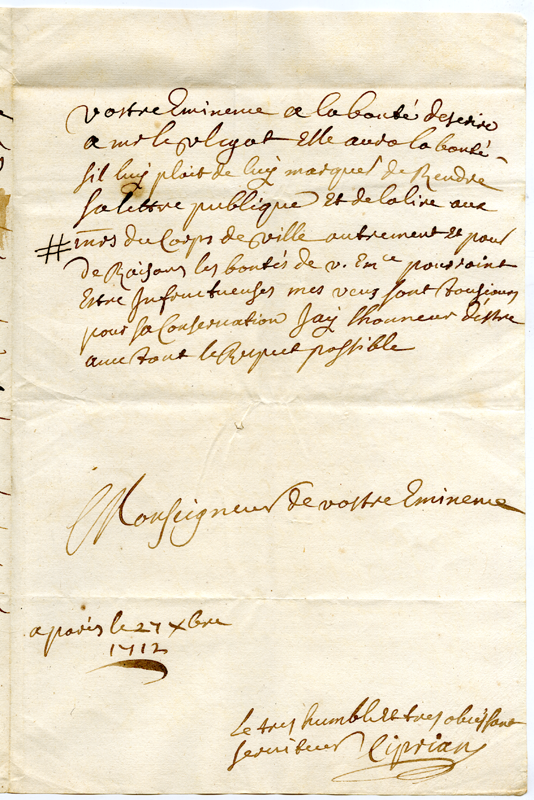 vostre Eminence a la bonté descrire
a mr le vlegat Elle aura la bonté
sil luy plait de luy marquer de Rendre
sa lettre publique Et de la lire aux
# mrs du Corps de ville autrement Et pour
de Raisons les bontés de v. Emce pouroint
Estre Infructueuses mes veus sont tousiours
pour sa Conservation Jay lhonneur destre
avec tout le Respect possible
Monseigneur de vostre Eminence
a paris le 27 xbre
1712
Le tres humble et tres obeissant
serviteur Ciprian